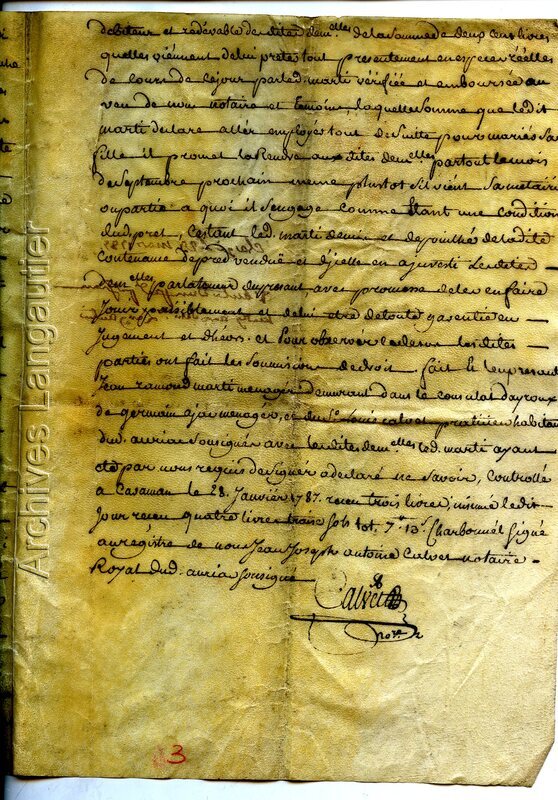 debiteur et redevable desdites dem.elles de la somme de deux cens livres
quelles viennent de lui preter tout presentement en especes réelles
de cours de ce jour par led. marti vérifiée et emboursée au
veu de moy notaire et temoins, laquelle somme que ledit
marti declare aller employer tout de suitte pour marier sa
fille il promet la rendre aux dites dem.elles par tout le mois
de septembre prochain meme plustot s'il vient
ou partie a quoi il s'engage comme étant une condition
dud. pret, s'estant led. marti demis et depouillé de ladite
contenance de pred vendue et d'icelle en a investi lesdites
dem.elles par la teneur du present avec promesse de les en faire
jouir paisiblement et de lui etre de toute garentie en
jugement et dhors. et Pour observer ledessus lesdites
parties ont fait les soumissions de droit. fait et leu presents
Jean ramond marti menager demeurant dans le consulat dayroux
de germain ajar menager, et du Sr. louis calvet praticien habitans
dud. auriac soussignés avec lesdites dem.elles led. marti ayant
eté par nous requis de signer a declaré ne savoir, controllé
a Caraman le 28. Janvier 1787. receu trois livres, insinué ledit
jour receu quatre livres traise sols tot. 7# 13s Charbonnel signé
au régistre de nous Jean Joseph antoine Calvet notaire
Royal dud. auriac soussigné
Calvet
no.re
3
Archives Langautier